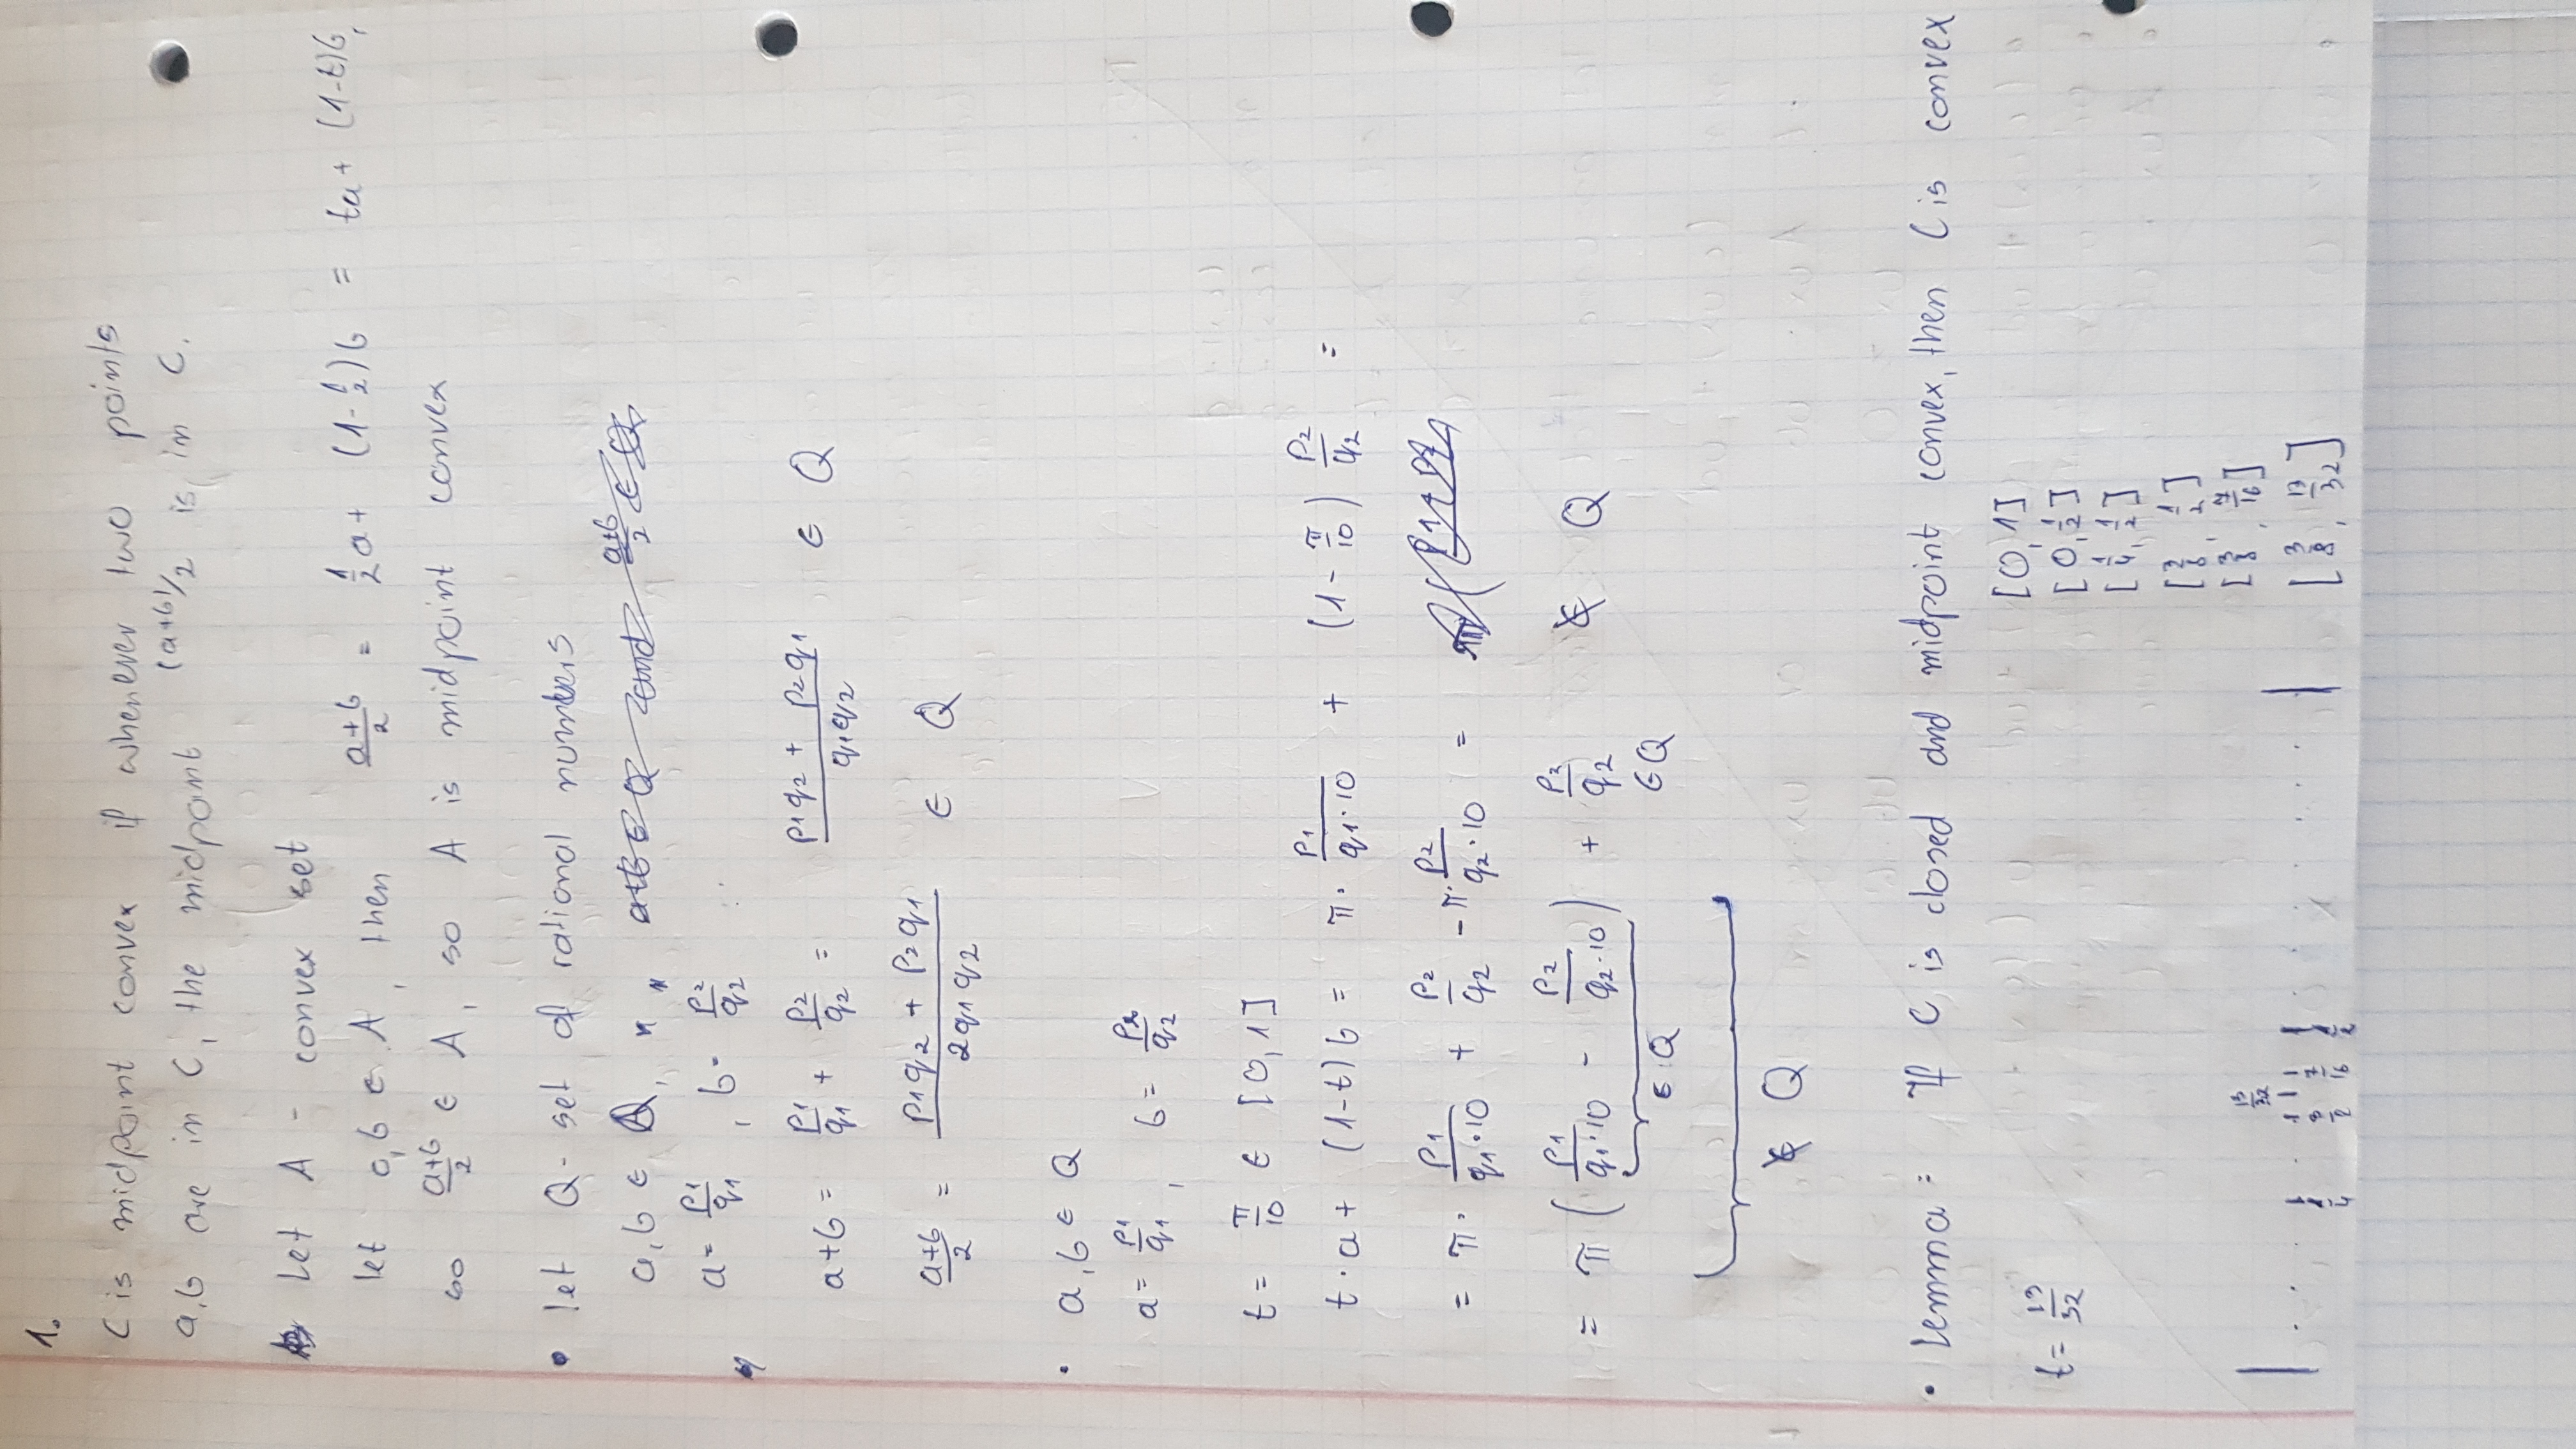 1.
C is midpoint convex if whenever two points
a,b are in C, the midpoint (a+b)/2 is in C.
Let A - convex set
let a,b ∈ A, then (a+b)/2 = 1/2 a + (1-1/2)b = ta + (1-t)b,
so (a+b)/2 ∈ A, so A is midpoint convex
• let Q - set of rational numbers
a,b ∈ Q,
a = p1/q1, b = p2/q2
a+b = p1/q1 + p2/q2 = (p1q2 + p2q1)/(q1q2) ∈ Q
(a+b)/2 = (p1q2 + p2q1)/(2q1q2) ∈ Q
• a,b ∈ Q
a = p1/q1, b = p2/q2
t = π/10 ∈ [0,1]
t·a + (1-t)b = π· p1/(q1·10) + (1 - π/10) p2/q2 =
= π· p1/(q1·10) + p2/q2 - π· p2/(q2·10) =
= π (p1/(q1·10) - p2/(q2·10)) + p2/q2 ∉ Q
∈ Q ∈ Q
∉ Q
• Lemma: If C is closed and midpoint convex, then C is convex
[0,1]
t = 13/32
[0, 1/2]
[1/4, 1/2]
[3/8, 1/2]
[3/8, 7/16]
[3/8, 13/32]
13/32
1/4 7/16 1/2